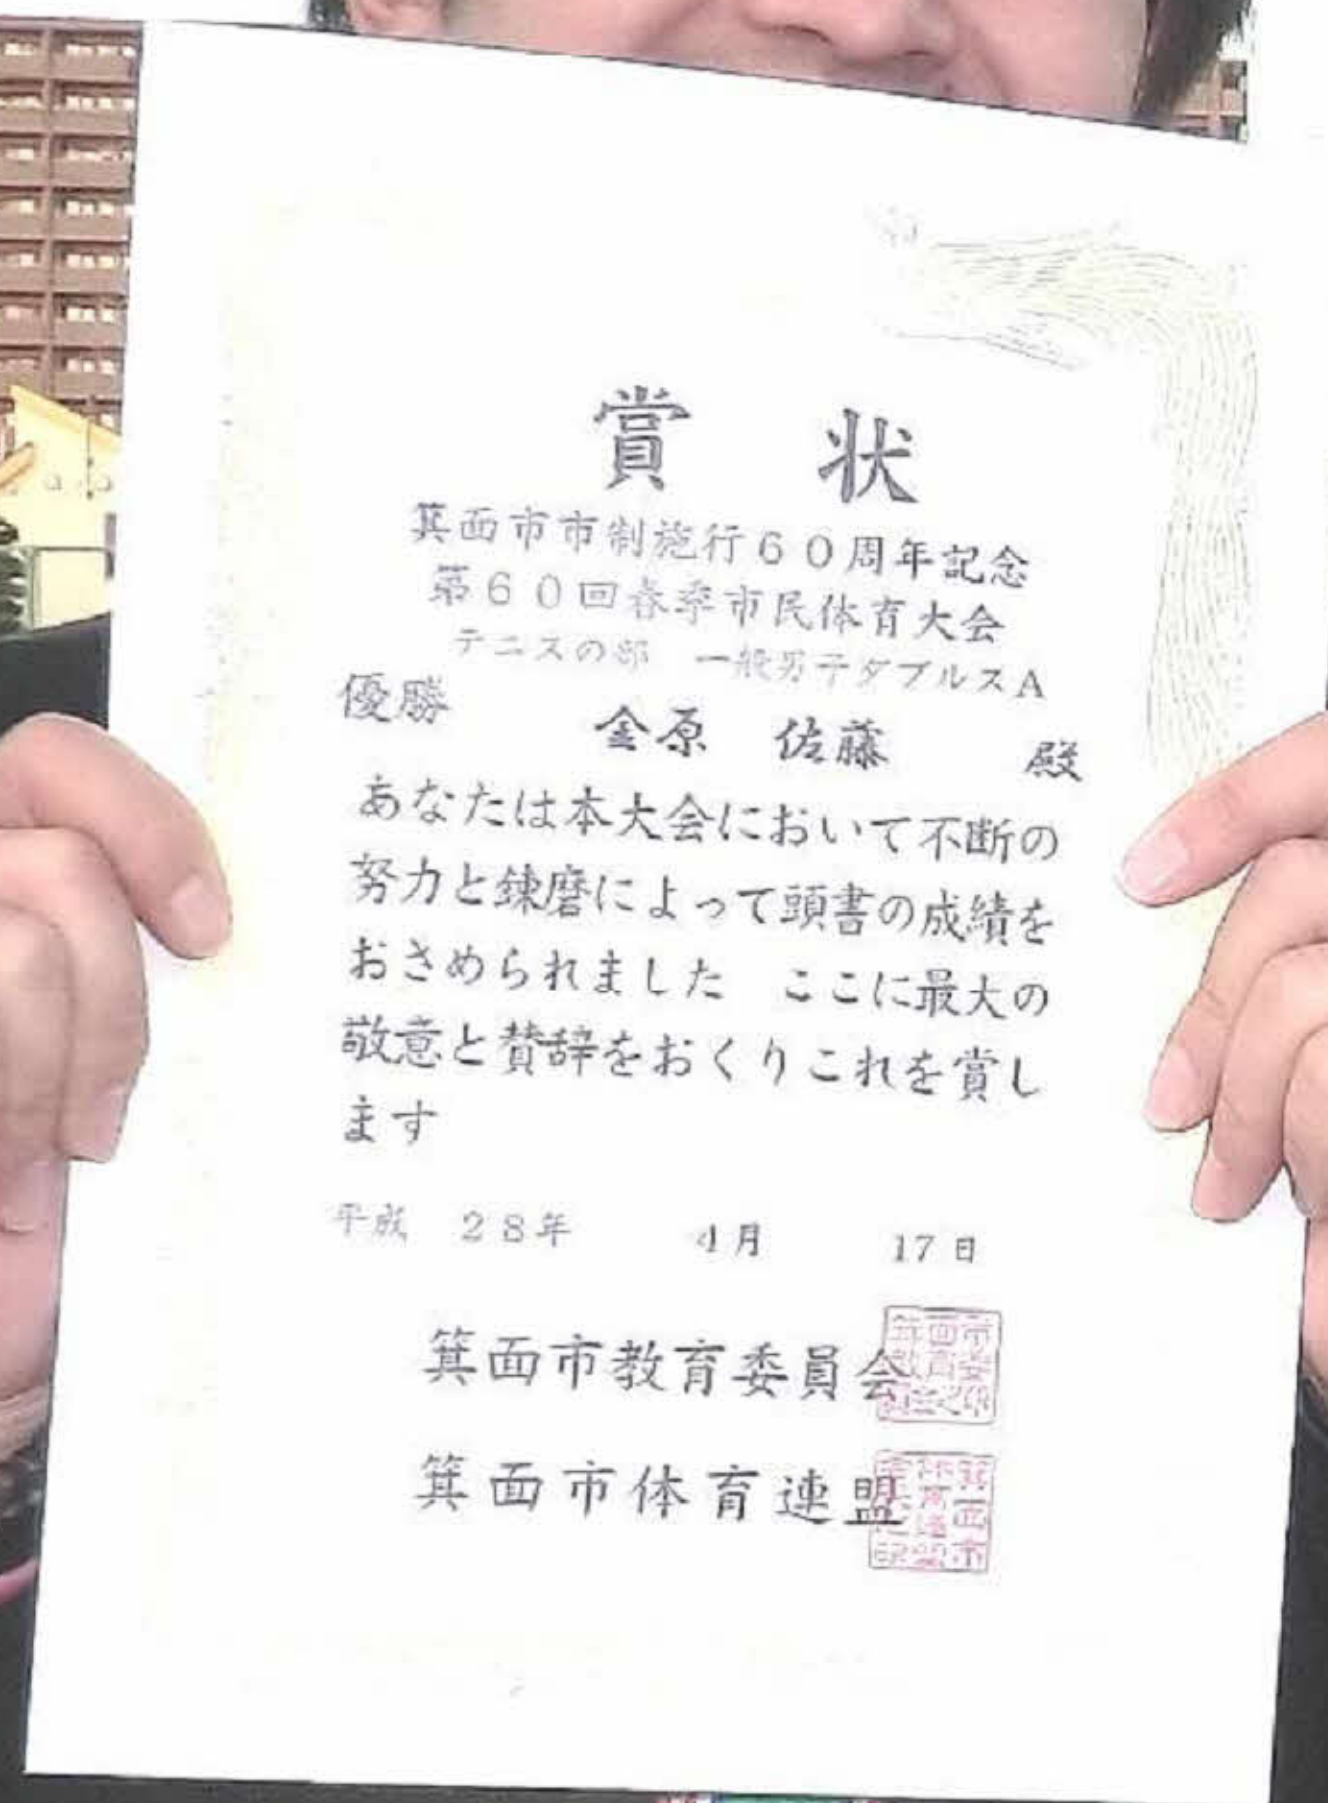 賞状
箕面市市制施行60周年記念
第60回春季市民体育大会
テニスの部 一般男子ダブルスA
優勝 金原 佐藤 殿
あなたは本大会において不断の
努力と錬磨によって頭書の成績を
おさめられました ここに最大の
敬意と賛辞をおくりこれを賞し
ます
平成 28年 4月 17日
箕面市教育委員会
箕面市体育連盟